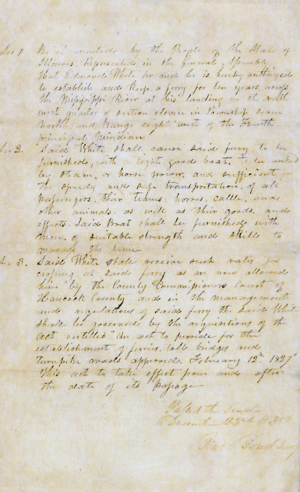 Sec. 1 Be it enacted by the People of the State of
Illinois, Represented in the General Assembly
That Edward White be and he is hereby authorized
to establish and keep a ferry for ten years, across
the Mississippi River at his landing in the north
west quarter of section eleven in Township seven
North, and Range eight west of the Fourth
Principal Meridian
Sec. 2. Said White shall cause said ferry to be
furnished, with eight good boats, to be
by steam, or horse power, and sufficient
the speedy and safe transportation, of all
passengers, their teams, horses, cattle, and
other animals, as well as their goods, and
effects. Said Boat shall be furnished with
men of suitable strength and skill to
manage the same
Sec. 3. Said White shall receive such rates for
crossing at said ferry as are now allowed
him by the County Commissioners Court of
Hancock County and in the management
and regulations of said ferry the said White
shall be governed by the requisitions of the
act entitled "An act to provide for the
establishment of ferries, toll bridges, and
turnpike roads" approved, February 12th 1827"
This act to take effect from and after
the date of its passage
Passed the